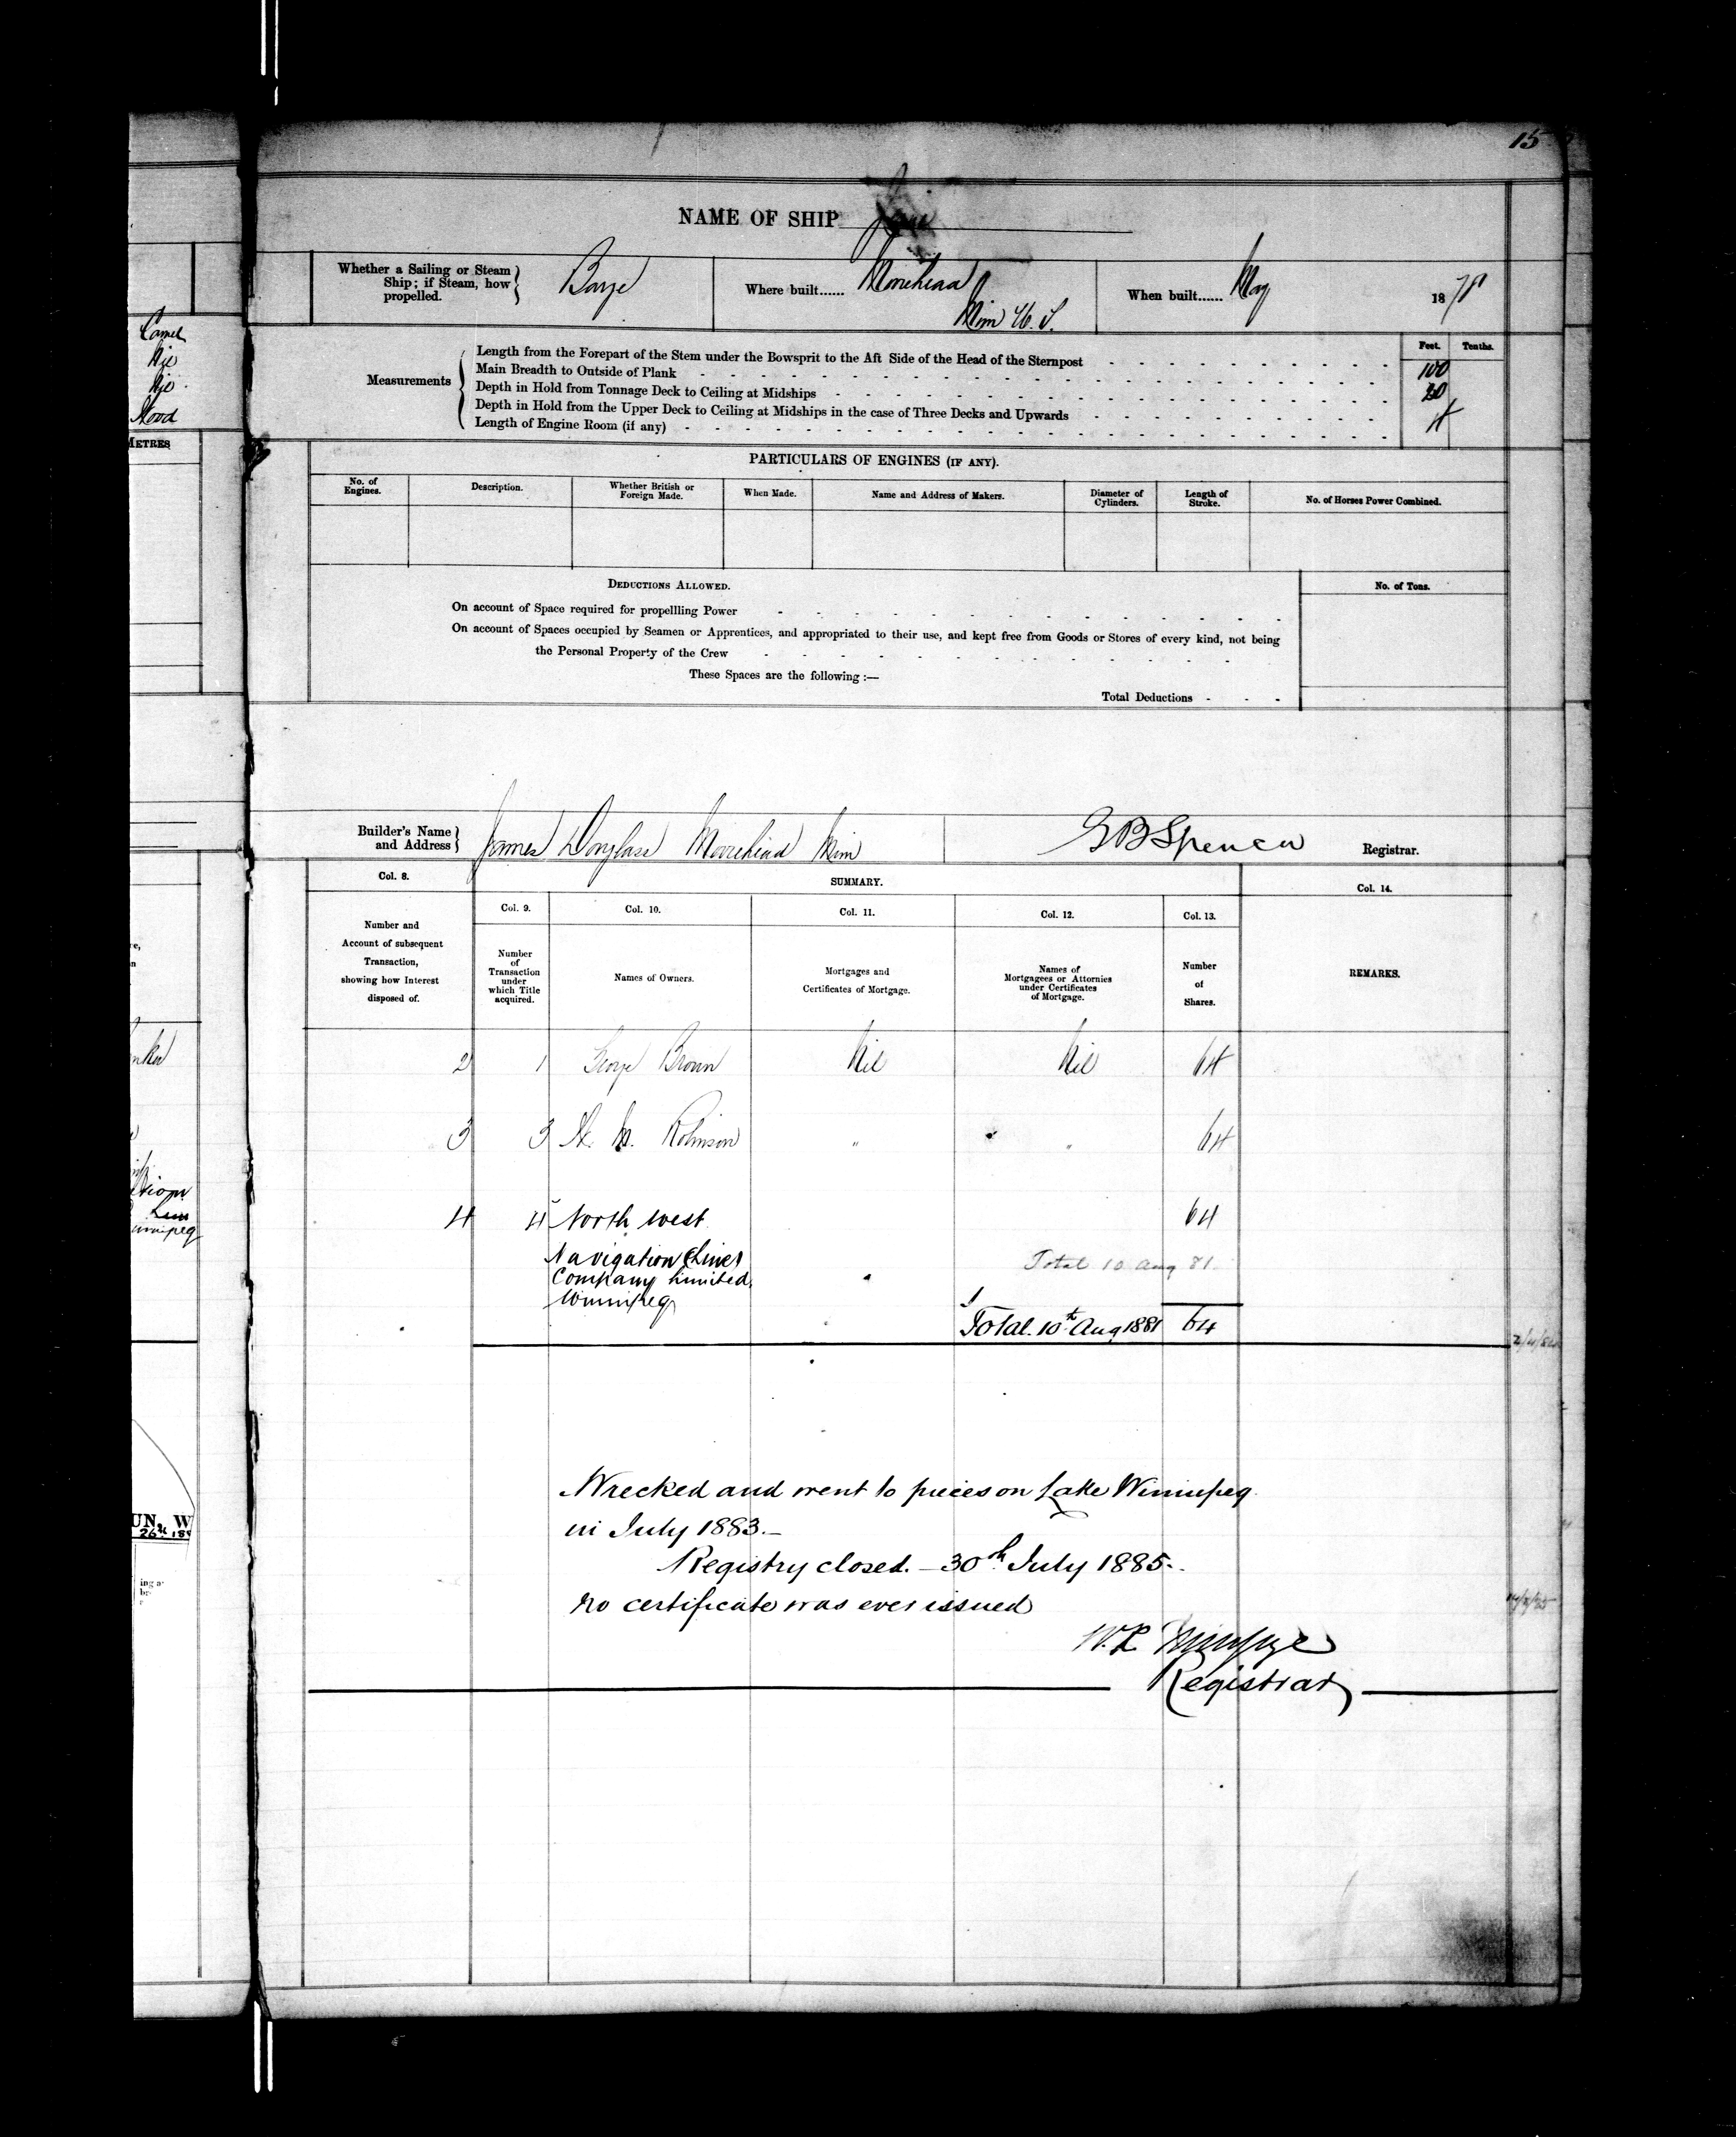 15
NAME OF SHIP
Whether a Sailing or Steam
Ship; if Steam, how
propelled.
Barge
Where built......
Moorehead
Min U. S.
When built......
May
18
Feet. Tenths.
Measurements
Length from the Forepart of the Stem under the Bowsprit to the Aft Side of the Head of the Sternpost
100
Main Breadth to Outside of Plank
20
Depth in Hold from Tonnage Deck to Ceiling at Midships
4
Depth in Hold from the Upper Deck to Ceiling at Midships in the case of Three Decks and Upwards
Length of Engine Room (if any)
PARTICULARS OF ENGINES (IF ANY).
No. of
Engines.
Description.
Whether British or
Foreign Made.
When Made.
Name and Address of Makers.
Diameter of
Cylinders.
Length of
Stroke.
No. of Horses Power Combined.
DEDUCTIONS ALLOWED.
No. of Tons.
On account of Space required for propellling Power
On account of Spaces occupied by Seamen or Apprentices, and appropriated to their use, and kept free from Goods or Stores of every kind, not being
the Personal Property of the Crew
These Spaces are the following :—
Total Deductions
Builder's Name
and Address
James Douglass Moorehead Min
G B Spencer
Registrar.
Col. 8.
SUMMARY.
Col. 14.
Col. 9.
Col. 10.
Col. 11.
Col. 12.
Col. 13.
Number and
Account of subsequent
Transaction,
showing how Interest
disposed of.
Number
of
Transaction
under
which Title
acquired.
Names of Owners.
Mortgages and
Certificates of Mortgage.
Names of
Mortgagees or Attornies
under Certificates
of Mortgage.
Number
of
Shares.
REMARKS.
2 1 George Brown Nil Nil 64
3 3 H. M. Robinson " " 64
4 4 North West 64
Navigation (Line)
Company Limited.
Winnipeg
Total 10 Aug 81
Total. 10th Aug 1881 64
Wrecked and went to pieces on Lake Winnipeg
in July 1883.—
Registry closed. — 30th July 1885.
no certificate was ever issued
Registrar
Camel
Nil
Nil
Wood
METRES
Winnipeg